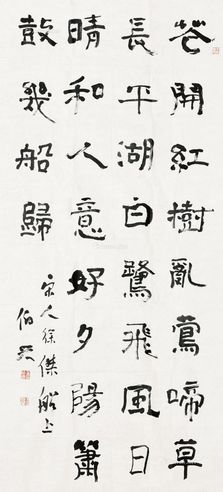 花開紅樹亂鶯啼草
長平湖白鷺飛風日
晴和人意好夕陽簫
鼓幾船歸
宋人徐傑船上
伯